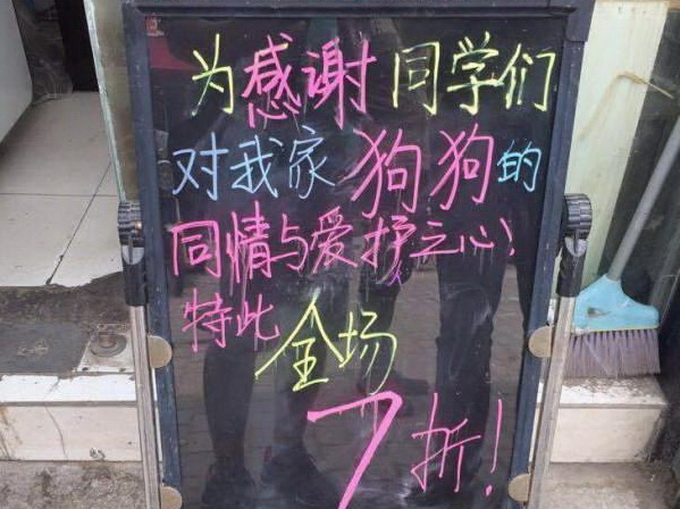 为感谢同学们
对我家狗狗的
同情与爱护之心!
特此全场
7折!